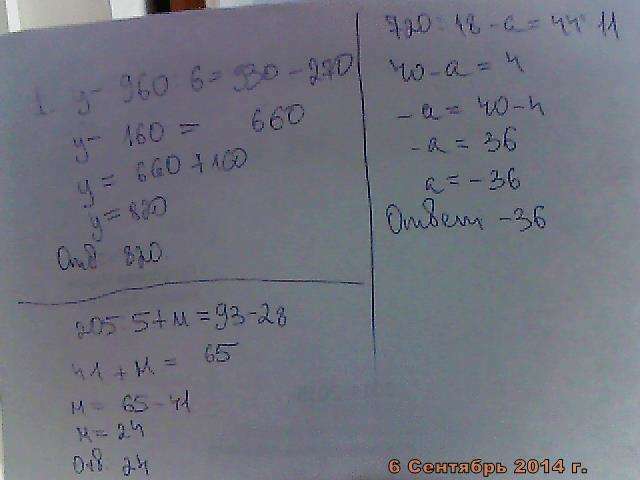 1. y - 960 : 6 = 930 - 270
y - 160 = 660
y = 660 + 160
y = 820
Отв 820
205 : 5 + м = 93 - 28
41 + м = 65
м = 65 - 41
м = 24
Отв 24
720 : 18 - а = 44 : 11
40 - а = 4
- а = 40 - 4
- а = 36
а = - 36
Ответ - 36
6 Сентябрь 2014 г.